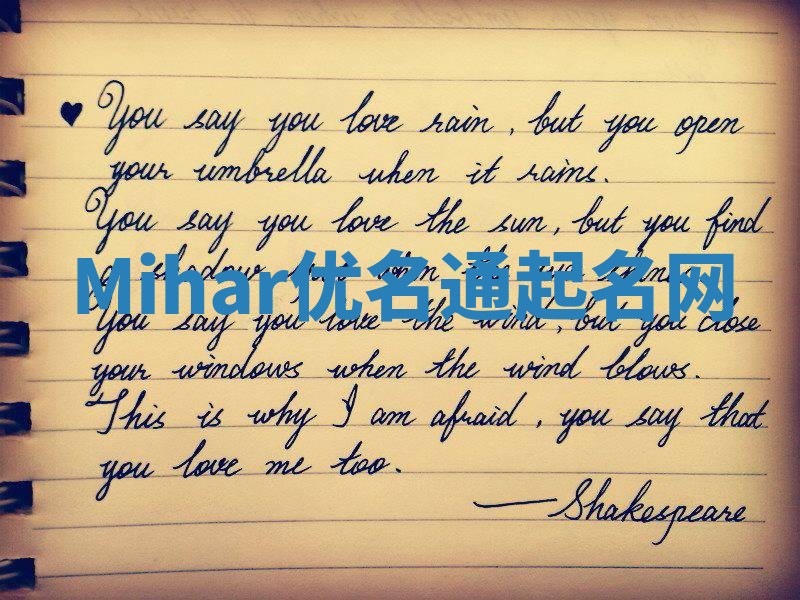 You say you love rain, but you open
your umbrella when it rains.
You say you love the sun, but you find
a shadow when the sun shines.
Mihar优名通起名网
You say you love the wind, but you close
your windows when the wind blows.
This is why I am afraid, you say that
you love me too.
—Shakespeare